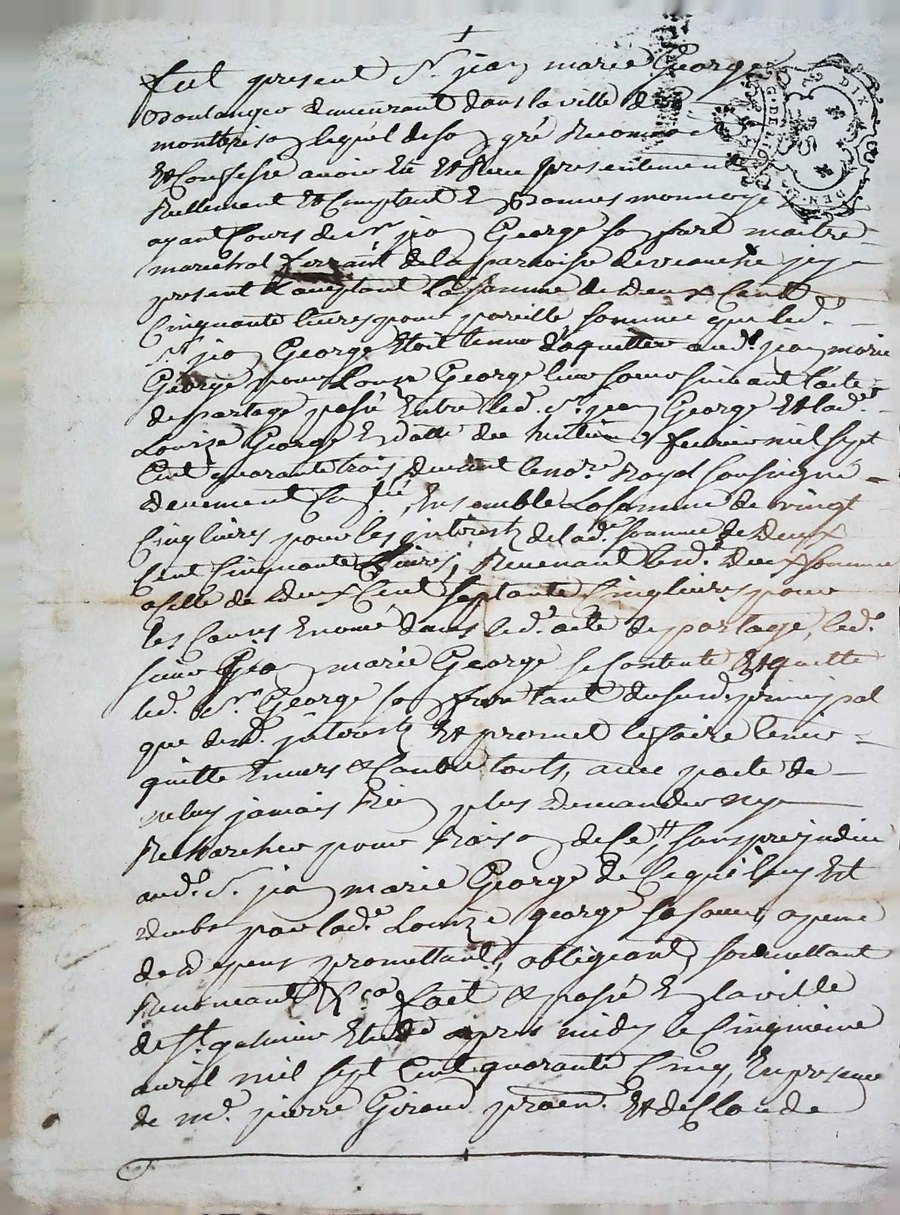 fut present Sr jean marie George
Boulanger demeurant dans la ville de
montbrison lequel de son gré Reconnoit
Et Confesse avoir Eu Et Receu presentement
Reellement Et Comptant En Bonnes monnoye
ayant Cours de Sr jean George son frere maitre
marechal ferrant de la parroisse de jcy
present Et aceptant La Somme de Deux Cent
Cinquante livres pour pareille somme que led.
Sr jean George Etoit tenu d'aquetter aud. jean marie
George pour Louize George leur soeur suivant l'acte
de partage passé Entre led. Sr jean George Et lad.
Louize George En datte du huitieme fevrier mil sept
Cent quarante trois devant le no.re Royal soussigné
deuement , Ensemble La somme de vingt
Cinq livres pour les jnterest de lad.e somme de Deux
Cent Cinquante Livres, Revenant lesd. Deux somme
a celle de Deux Cent septante Cinq livres pour
les Causes Enoncé dans led. acte de partage, led.
sieur Jean marie George se Contente Et quitte
led. Sr George son frere tant dususd. principal
que desd. jnterest Et promet le faire tenir
quitte Envers Et Contre touts, avec pacte de
ne luy jamais Rien plus Demander ny
Recharcher pour Raison de Ce, sans prejudice
aud. S. jean marie George de Ce qui luy Est
deub par lad.e Louize george sa soeur, a peine
de depens promettant, obligeant, soumettant
Renonceant &ca fait & passé En la ville
de St. galmier Etude apres midy le Cinqmieme
avril mil sept Cent quarante Cinq, En presence
de me. pierre Giraud praen. Et de Claude